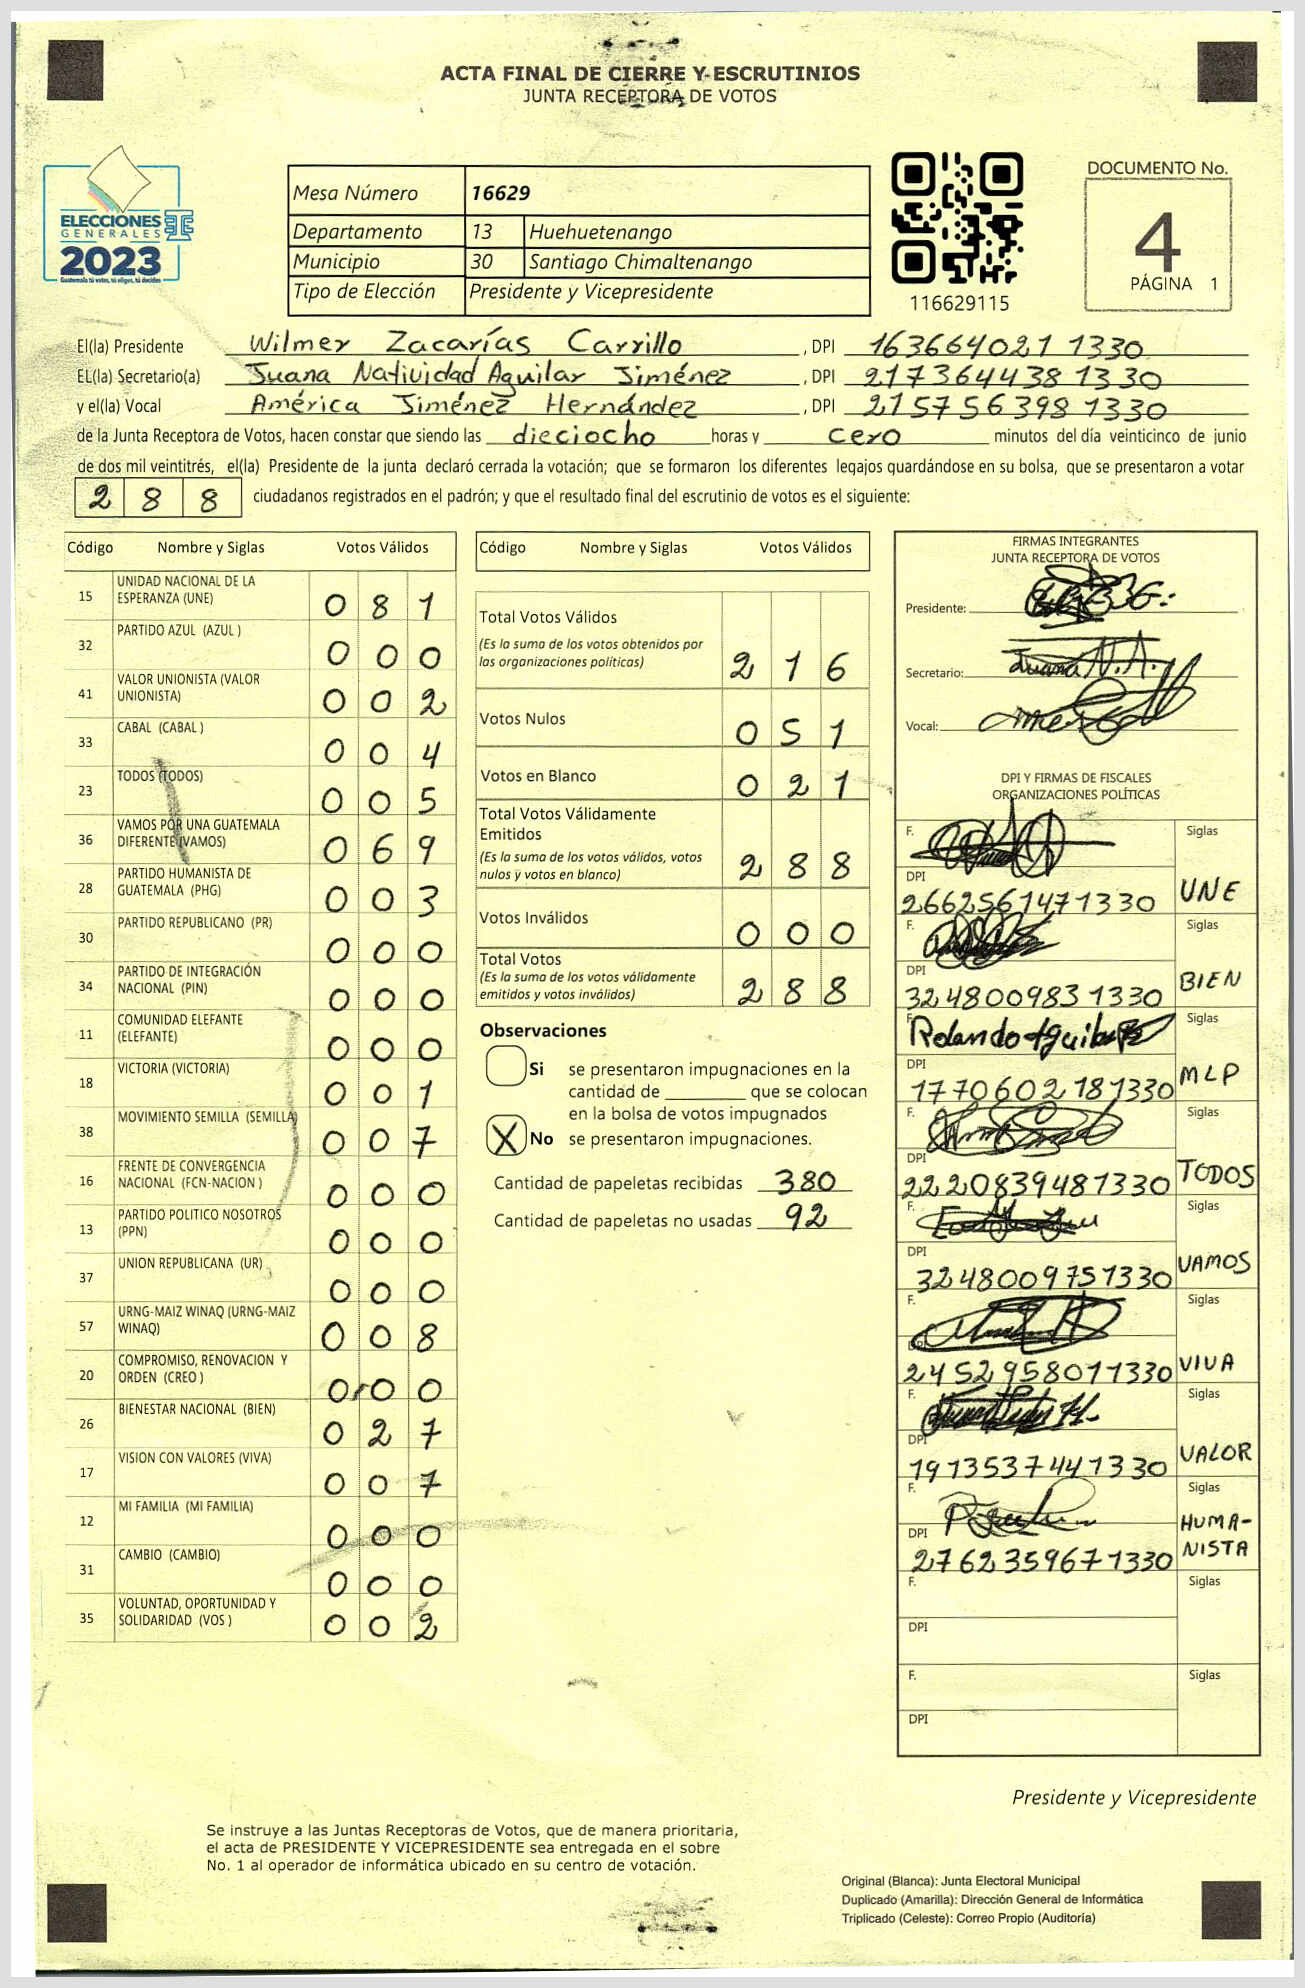 ACTA FINAL DE CIERRE Y ESCRUTINIOS
JUNTA RECEPTORA DE VOTOS
ELECCIONES
GENERALES
2023
Guatemala tú votas, tú eliges, tú decides
Mesa Número 16629
Departamento 13 Huehuetenango
Municipio 30 Santiago Chimaltenango
Tipo de Elección Presidente y Vicepresidente
116629115
DOCUMENTO No.
4
PÁGINA 1
El(la) Presidente Wilmer Zacarías Carrillo , DPI 163664021 1330
EL(la) Secretario(a) Juana Natividad Aguilar Jiménez , DPI 217364438 1330
y el(la) Vocal América Jiménez Hernández , DPI 215756398 1330
de la Junta Receptora de Votos, hacen constar que siendo las dieciocho horas y cero minutos del día veinticinco de junio
de dos mil veintitrés, el(la) Presidente de la junta declaró cerrada la votación; que se formaron los diferentes legajos guardándose en su bolsa, que se presentaron a votar
288 ciudadanos registrados en el padrón; y que el resultado final del escrutinio de votos es el siguiente:
Código Nombre y Siglas Votos Válidos
15 UNIDAD NACIONAL DE LA
ESPERANZA (UNE) 081
32 PARTIDO AZUL (AZUL ) 000
41 VALOR UNIONISTA (VALOR
UNIONISTA) 002
33 CABAL (CABAL ) 004
23 TODOS (TODOS) 005
36 VAMOS POR UNA GUATEMALA
DIFERENTE (VAMOS) 069
28 PARTIDO HUMANISTA DE
GUATEMALA (PHG) 003
30 PARTIDO REPUBLICANO (PR) 000
34 PARTIDO DE INTEGRACIÓN
NACIONAL (PIN) 000
11 COMUNIDAD ELEFANTE
(ELEFANTE) 000
18 VICTORIA (VICTORIA) 001
38 MOVIMIENTO SEMILLA (SEMILLA) 007
16 FRENTE DE CONVERGENCIA
NACIONAL (FCN-NACION ) 000
13 PARTIDO POLITICO NOSOTROS
(PPN) 000
37 UNION REPUBLICANA (UR) 000
57 URNG-MAIZ WINAQ (URNG-MAIZ
WINAQ) 008
20 COMPROMISO, RENOVACION Y
ORDEN (CREO ) 000
26 BIENESTAR NACIONAL (BIEN) 027
17 VISION CON VALORES (VIVA) 007
12 MI FAMILIA (MI FAMILIA) 000
31 CAMBIO (CAMBIO) 000
35 VOLUNTAD, OPORTUNIDAD Y
SOLIDARIDAD (VOS ) 002
Código Nombre y Siglas Votos Válidos
Total Votos Válidos
(Es la suma de los votos obtenidos por
las organizaciones políticas) 216
Votos Nulos 051
Votos en Blanco 021
Total Votos Válidamente
Emitidos
(Es la suma de los votos válidos, votos
nulos y votos en blanco) 288
Votos Inválidos 000
Total Votos
(Es la suma de los votos válidamente
emitidos y votos inválidos) 288
Observaciones
Si se presentaron impugnaciones en la
cantidad de ________ que se colocan
en la bolsa de votos impugnados
X No se presentaron impugnaciones.
Cantidad de papeletas recibidas 380
Cantidad de papeletas no usadas 92
FIRMAS INTEGRANTES
JUNTA RECEPTORA DE VOTOS
Presidente:
Secretario: Juana N.A.
Vocal:
DPI Y FIRMAS DE FISCALES
ORGANIZACIONES POLÍTICAS
F. Siglas
DPI 2662561471330 UNE
F. Siglas
DPI 3248009831330 BIEN
F. Rolando Aguilar Siglas
DPI 1770602181330 MLP
F. Siglas
DPI 2220839481330 TODOS
F. Siglas
DPI 3248009751330 VAMOS
F. Siglas
DPI 2452958011330 VIVA
F. Siglas
DPI 1913537441330 VALOR
F. Siglas
DPI 2762359671330 HUMA-
NISTA
F. Siglas
DPI
F. Siglas
DPI
Presidente y Vicepresidente
Se instruye a las Juntas Receptoras de Votos, que de manera prioritaria,
el acta de PRESIDENTE Y VICEPRESIDENTE sea entregada en el sobre
No. 1 al operador de informática ubicado en su centro de votación.
Original (Blanca): Junta Electoral Municipal
Duplicado (Amarilla): Dirección General de Informática
Triplicado (Celeste): Correo Propio (Auditoría)